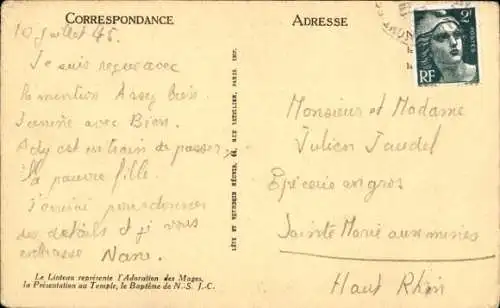 CORRESPONDANCE
10 Juillet 45.
Je suis reçue avec
la mention Assez bien
Janine avec Bien.
Ady est en train de passer
la pauvre fille.
Janine
des détails et je vous
embrasse Nane.
Le Linteau représente l'Adoration des Mages,
la Présentation au Temple, le Baptême de N.-S. J.-C.
PARIS IMP.
ADRESSE
2F
POSTES
RF
Monsieur et Madame
Julien Jaudel
Epicerie en gros
Sainte Marie aux mines
Haut Rhin